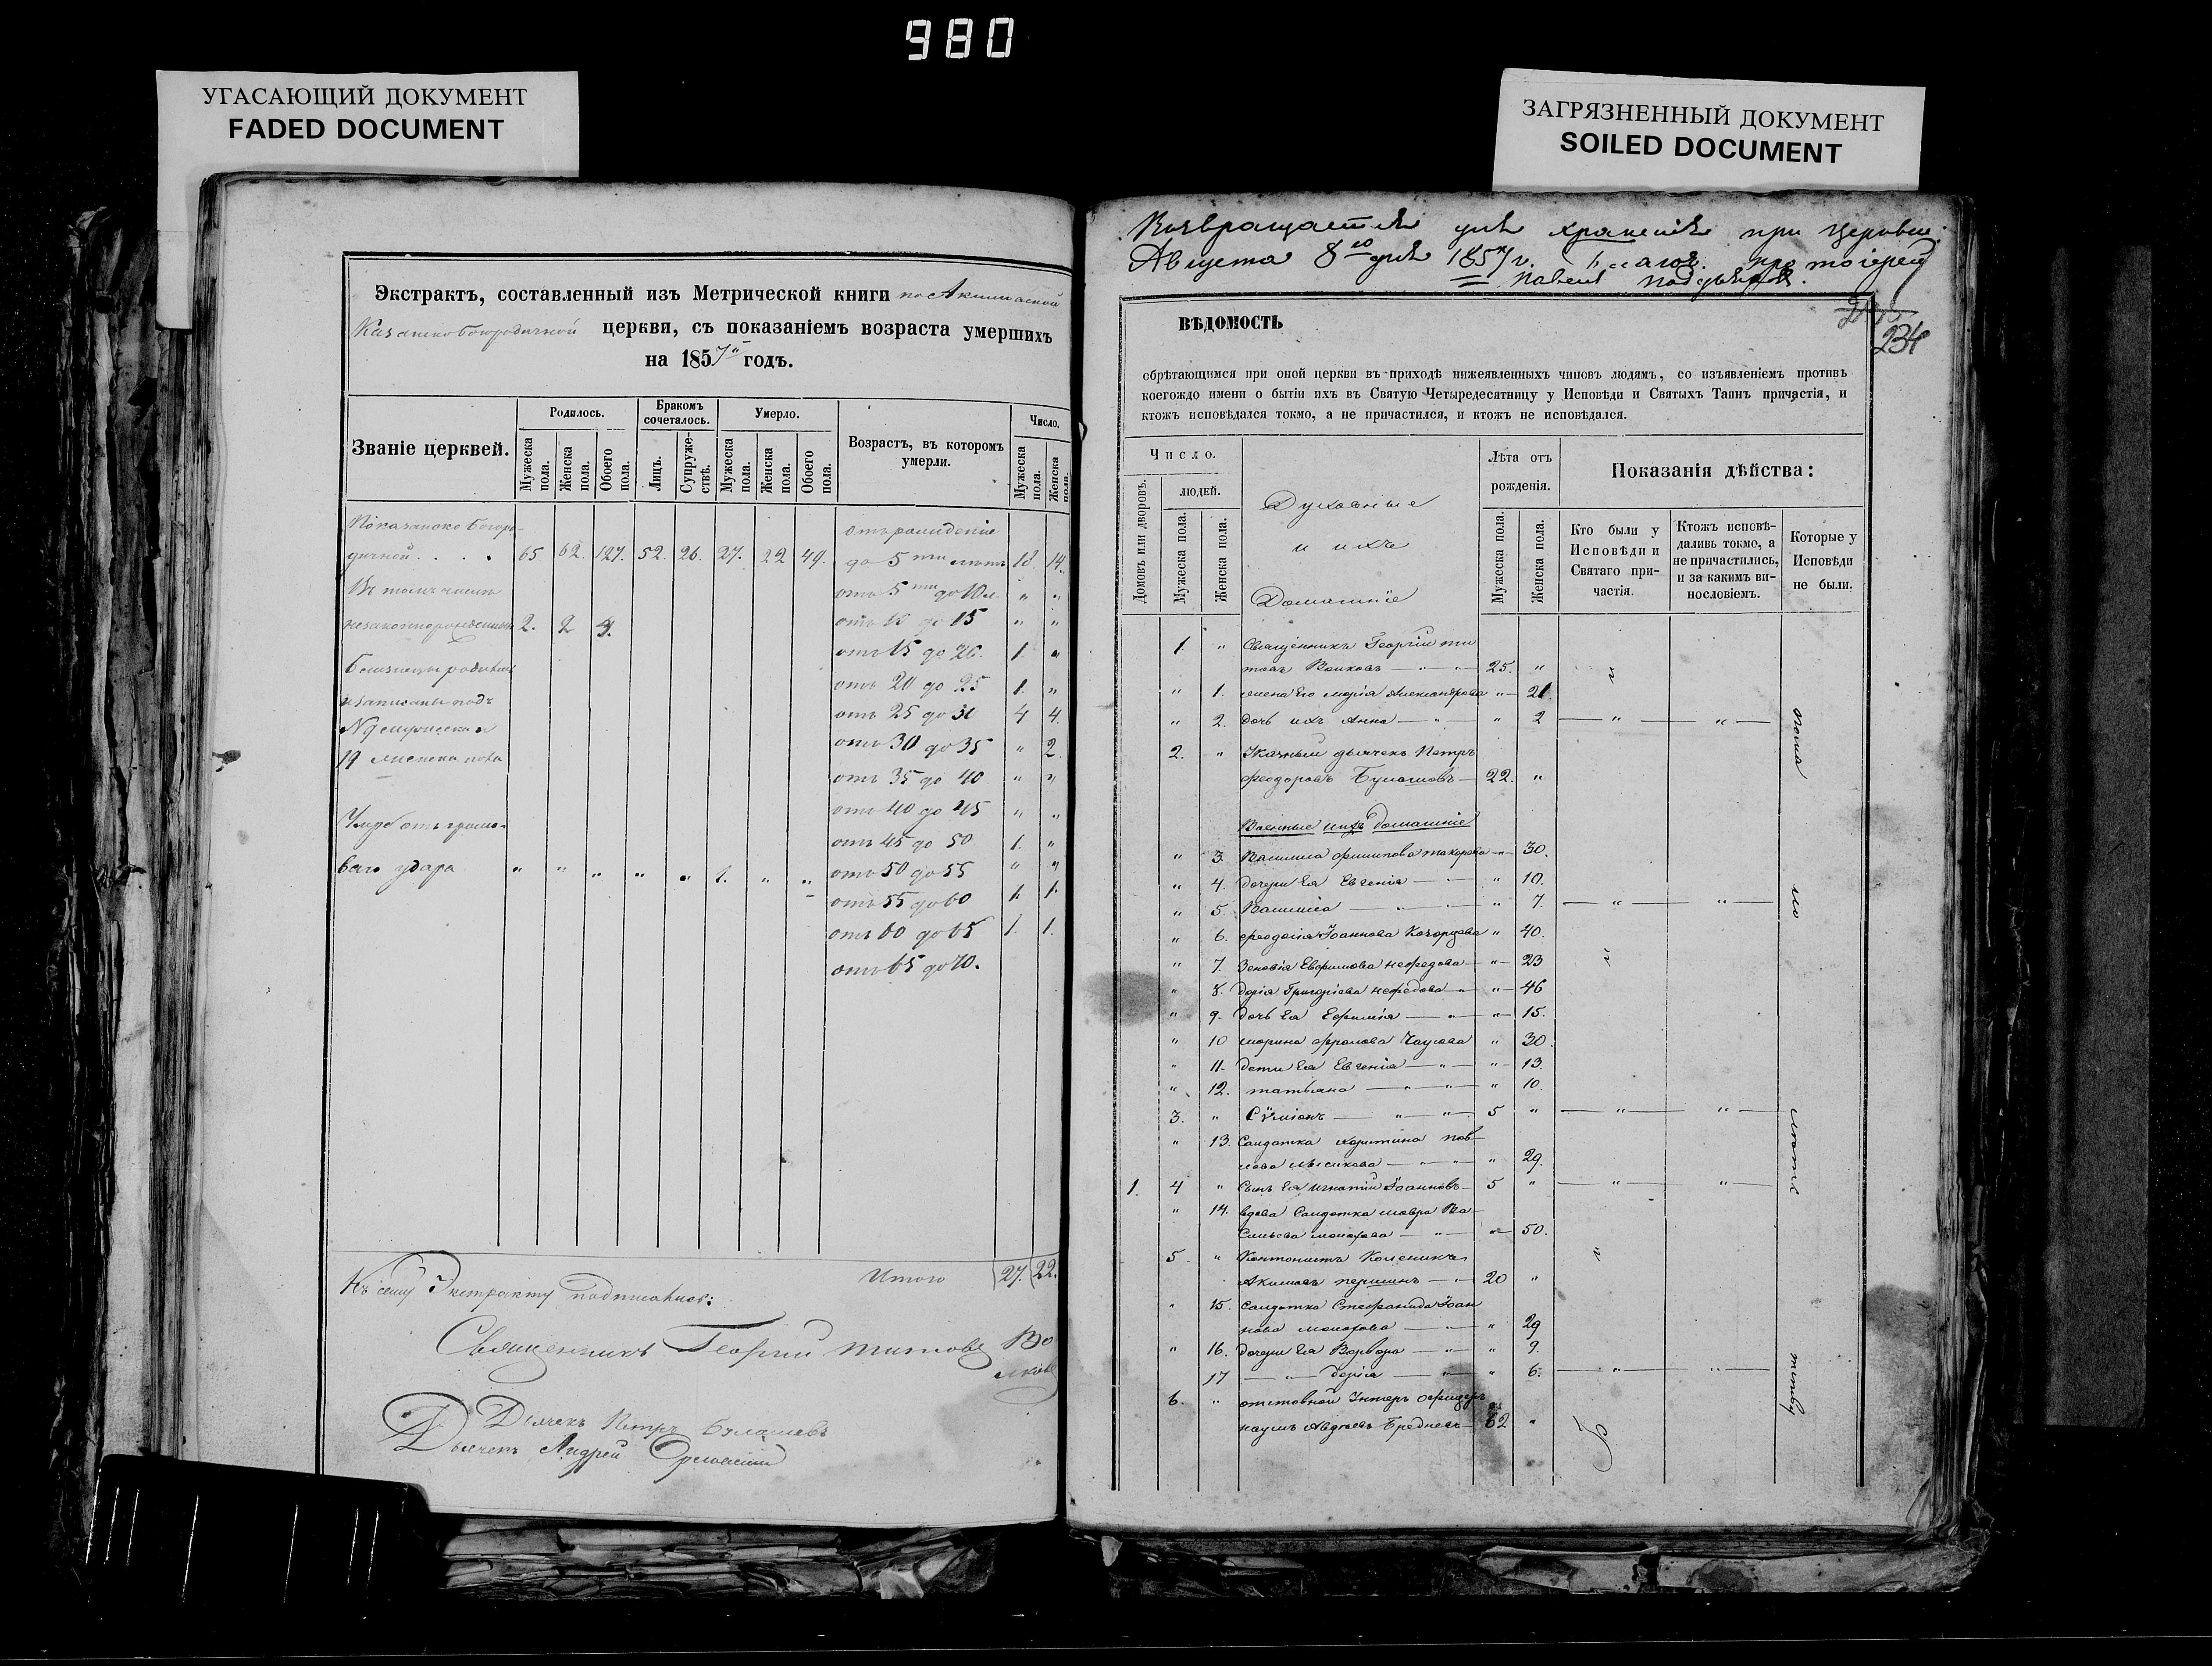 980
УГАСАЮЩИЙ ДОКУМЕНТ
FADED DOCUMENT
ЗАГРЯЗНЕННЫЙ ДОКУМЕНТ
SOILED DOCUMENT
Экстрактъ, составленный изъ Метрической книги по
Казанско Богородичной церкви, съ показаніемъ возраста умершихъ
на 1857й годъ.
Званіе церквей.
Родилось.
Бракомъ сочеталось.
Умерло.
Возрастъ, въ которомъ умерли.
Число.
Мужеска пола.
Женска пола.
Обоего пола.
Лицъ.
Супружествъ.
Мужеска пола.
Женска пола.
Обоего пола.
Мужеска пола.
Женска пола.
По Казанско Богоро-
дичной . . . . 65. 62. 127. 52. 26. 27. 22 49.
Въ томъ числѣ
незаконнорожденныхъ 2. 2 4.
Близнецы родились
и записаны подъ
19 женска пола
Умре отъ громо-
ваго удара " " " " " 1. " "
отъ рожденія
до 5ти лѣтъ 18. 14.
отъ 5ти до 10 л. " "
отъ 10 до 15 " "
отъ 15 до 20. 1. "
отъ 20 до 25 1. "
отъ 25 до 30 4 4.
отъ 30 до 35 " 2.
отъ 35 до 40 " "
отъ 40 до 45 " "
отъ 45 до 50 1. "
отъ 50 до 55 " "
отъ 55 до 60 1. 1.
отъ 60 до 65 1. 1.
отъ 65 до 70.
Итого 27. 22.
Къ сему Экстракту подписались:
Священникъ Георгій Титовъ Во
лковъ
Дьячекъ Петръ Булашевъ
Дьячекъ Андрей
Возвращается для храненія при церкви
Августа 8го дня 1857 г. протоіерей
Павелъ
234
ВѢДОМОСТЬ
обрѣтающимся при оной церкви въ приходѣ нижеявленныхъ чиновъ людямъ, со изъявленіемъ противъ
коегождо имени о бытіи ихъ въ Святую Четыредесятницу у Исповѣди и Святыхъ Таинъ причастія, и
ктожъ исповѣдался токмо, а не причастился, и ктожъ не исповѣдался.
Число.
Домовъ или дворовъ.
людей.
Мужеска пола.
Женска пола.
Духовные
и ихъ
Домашніе
Лѣта отъ рожденія.
Мужеска пола.
Женска пола.
Показанія дѣйства:
Кто были у Исповѣди и Святаго причастія.
Ктожъ исповѣдаливь токмо, а не причастились, и за какимъ винословіемъ.
Которые у Исповѣди не были.
1. " Священникъ Георгій Ти
товъ Волковъ 25. "
" 1. жена его Марія Александрова " 21.
" 2. дочь ихъ Анна " 2
2. " Указный дьячекъ Петръ
Феодоровъ Булашовъ 22. "
Военные ихъ домашніе
" 3. Василиса Филипова Токарева " 30.
" 4. дочери ея Евгенія " 10.
" 5. Василиса " 7.
" 6. Феодосія Іоаннова " 40.
" 7. Зеновія Евфимова Нефедова " 23
" 8. Дарія Григоріева Нефедова " 46
" 9. дочь ея Ефимія " 15.
" 10 Марина Фролова " 30.
" 11. дети ея Евгенія " 13.
" 12. Татьяна " 10.
3. " Сѵмеонъ 5 "
" 13. Солдатка Харитина Пав
лова " 29.
1. 4 " Сынъ ея Игнатій Іоанновъ 5 "
" 14. вдова Солдатка Мавра Ва
сильева " 50.
5 " Кантонистъ
20 "
" 15. Солдатка Стефанида Іоан
нова " 29
" 16. дочери ея Варвара " 9.
17 Дарія " 6.
6. " отставной Унтеръ офицеръ
Наумъ Авдѣевъ Бредневъ 62 "